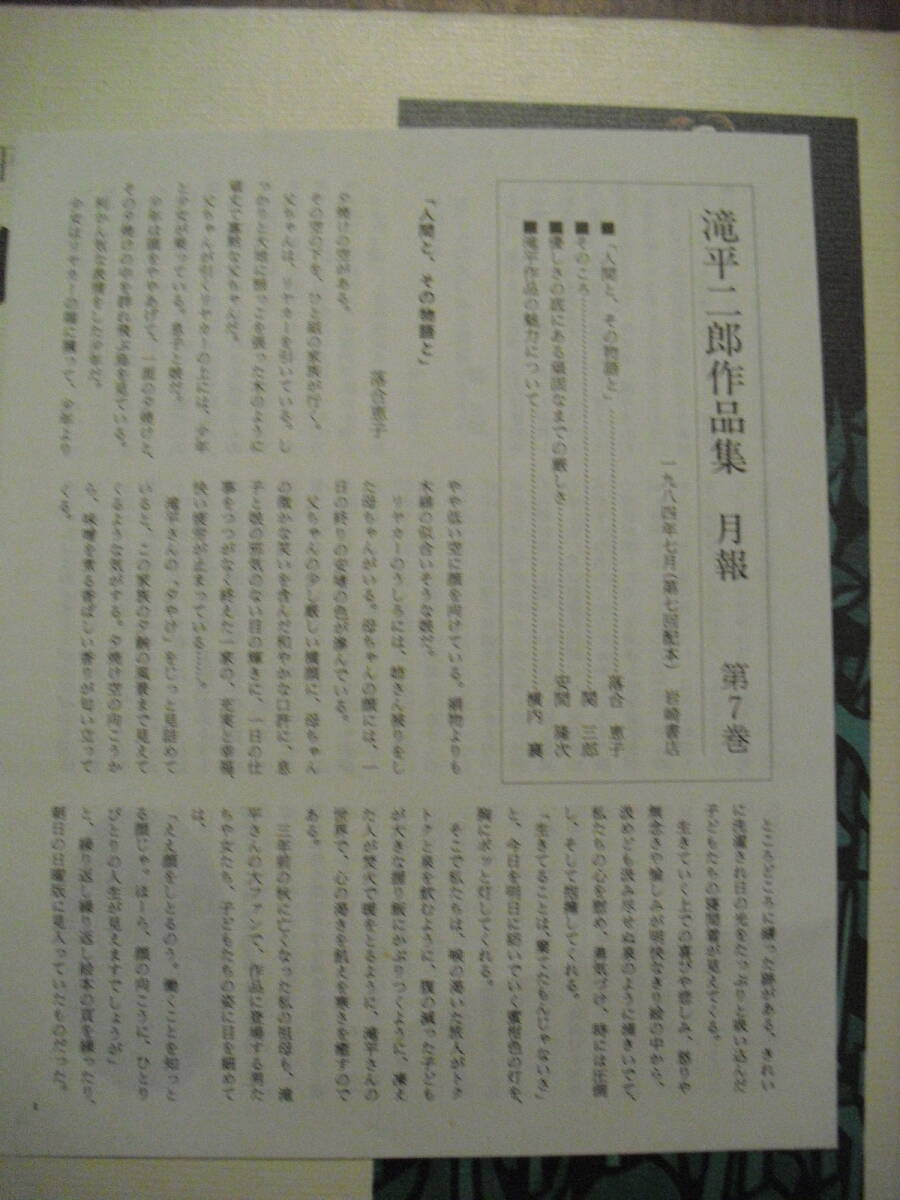 滝平二郎作品集　月報　第7巻
一九八四年七月(第七回配本)　岩崎書店
■「人間と、その物語と」…………落合　恵子
■そのころ…………関　三郎
■優しさの底にある頑固なまでの厳しさ…………安間　隆次
■滝平作品の魅力について…………横内　襄
「人間と、その物語と」
落合恵子
夕焼けの空がある。
その空の下を、ひと組の家族が行く。
父ちゃんは、リヤカーを引いている。し
っかりと大地に根っこを張った木のように
頑丈で寡黙な父ちゃんだ。
父ちゃんが引くリヤカーの上には、少年
と少女が乗っている。息子と娘だ。
少年は顔をややあげて、一面の夕焼けと、
その夕焼けの中を群れ飛ぶ鳥を見ている。
利かん気な表情をした少年だ。
少女はリヤカーの端に横って、少年より
やや低い空に顔を向けている。絹物よりも
木綿の似合いそうな娘だ。
リヤカーのうしろには、姉さん被りをし
た母ちゃんがいる。母ちゃんの顔には、一
日の終りの安堵の色が滲んでいる。
父ちゃんの少し厳しい横顔に、母ちゃん
の微かな笑いを含んだ和やかな口許に、息
子と娘の邪気のない目の輝きに、一日の仕
事をつつがなく終えた一家の、充実と幸福、
快い疲労が止まっている……。
滝平さんの「夕やけ」をじっと見詰めて
いると、この家族の夕餉の風景まで見えて
くるような気がする。夕焼け空の向こうか
ら、味噌を煮る香ばしい香りが匂い立って
くる。
ところどころに繕った跡がある、きれい
に洗濯され日の光をたっぷりと吸い込んだ
子どもたちの寝間着が見えてくる。
生きていく上での喜びや悲しみ、怒りや
無念さや愉しみが明快なきり絵の中から、
汲めども汲み尽せぬ泉のように湧きいでて、
私たちの心を慰め、勇気づけ、時には圧倒
し、そして抱擁してくれる。
「生きてることは、棄てたもんじゃないさ」
と、今日を明日に紡いでいく蜜柑色の灯を、
胸にポッと灯してくれる。
そこで私たちは、喉の渇いた旅人がトク
トクと泉を飲むように、腹の減った子ども
が大きな握り飯にかぶりつくように、凍え
た人が焚火で暖をとるように、滝平さんの
世界で、心の渇きを飢えを寒さを癒すので
ある。
三年前の秋に亡くなった私の祖母も、滝
平さんの大ファンで、作品に登場する男た
ちや女たち、子どもたちの姿に目を細めて
は、
「ええ顔をしとるのう。働くことを知っと
る顔じゃ。ほーら、顔の向こうに、ひとり
ひとりの人生が見えますでしょうが」
と、繰り返し繰り返し絵本の頁を繰ったり、
朝日の日曜版に見入っていたものだった。